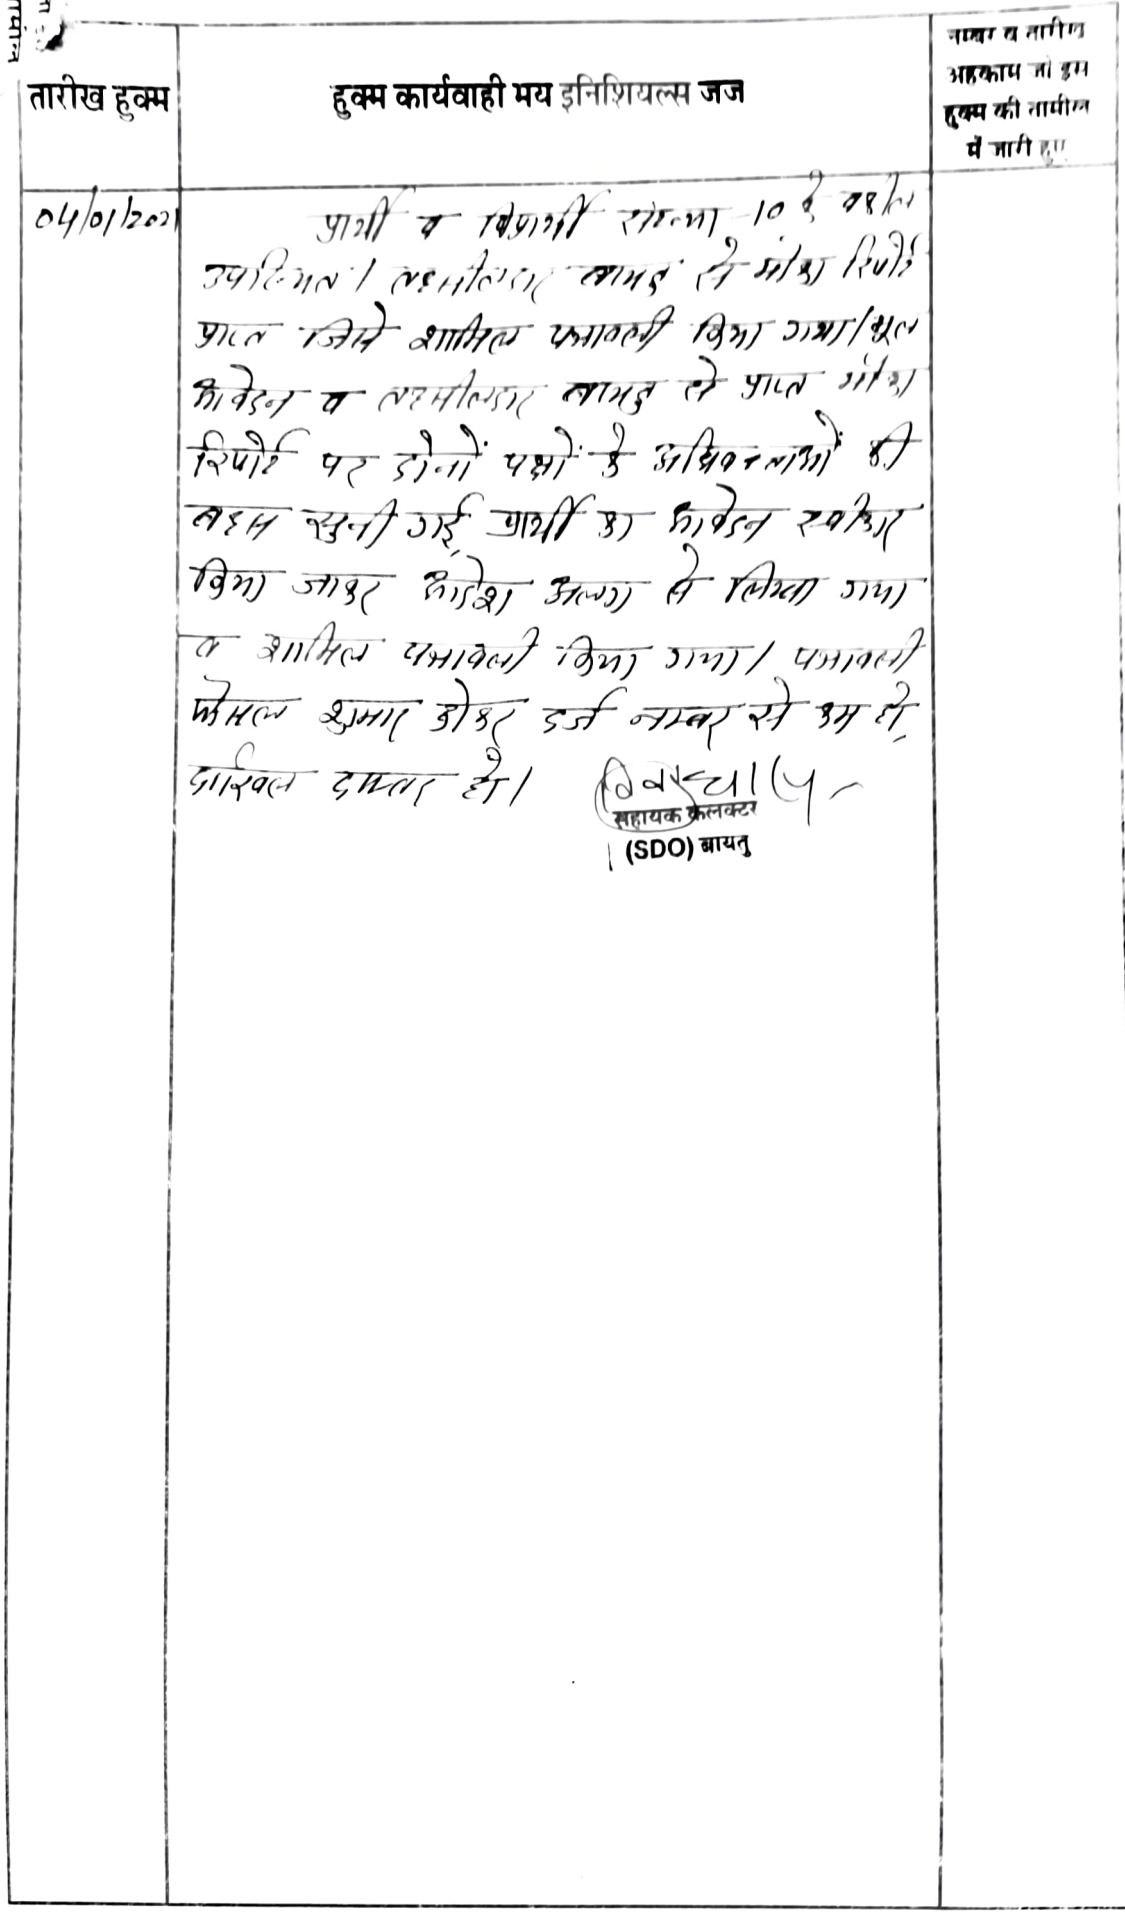 तारीख हुक्म
हुक्म कार्यवाही मय इनिशियल्स जज
नम्बर व तारीख
अहकाम जो इस
हुक्म की तामील
में जारी हुए
04/01/2021
प्रार्थी व विप्रार्थी संख्या 10 के वकील
उपस्थित। तहसीलदार बायतु से मौका रिपोर्ट
प्राप्त जिसे शामिल पत्रावली किया गया। मूल
आवेदन व तहसीलदार बायतु से प्राप्त मौका
रिपोर्ट पर दोनों पक्षों के अधिवक्ताओं की
बहस सुनी गई, प्रार्थी का आवेदन स्वीकार
किया जाकर आदेश अलग से लिखा गया
व शामिल पत्रावली किया गया। पत्रावली
फैसल शुमार होकर दर्ज नम्बर से कम हो,
दाखिल दफ्तर हो।
सहायक कलक्टर
(SDO) बायतु